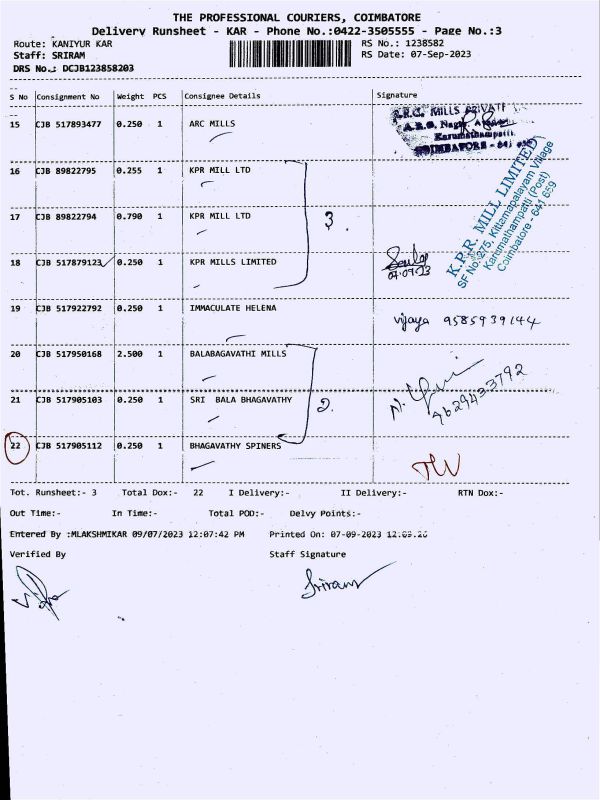 THE PROFESSIONAL COURIERS, COIMBATORE
Delivery Runsheet - KAR - Phone No.:0422-3505555 - Page No.:3
Route: KANIYUR KAR RS No.: 1238582
Staff: SRIRAM RS Date: 07-Sep-2023
DRS No.: DCJB123858203
S No Consignment No Weight PCS Consignee Details Signature
15 CJB 517893477 0.250 1 ARC MILLS
A.R.C. MILLS PRIVATE
A.R.C. Nagar,
Karumathampatti,
COIMBATORE - 641
16 CJB 89822795 0.255 1 KPR MILL LTD
K.P.R. MILL LIMITED
SF No:275, Kittampalayam Village
Karumathampatti (Post)
Coimbatore - 641 659
17 CJB 89822794 0.790 1 KPR MILL LTD 3.
18 CJB 517879123 0.250 1 KPR MILLS LIMITED
07.09.23
19 CJB 517922792 0.250 1 IMMACULATE HELENA vijaya 9585939144
20 CJB 517950168 2.500 1 BALABAGAVATHI MILLS
21 CJB 517905103 0.250 1 SRI BALA BHAGAVATHY 2. 9629433792
22 CJB 517905112 0.250 1 BHAGAVATHY SPINERS
Tot. Runsheet:- 3 Total Dox:- 22 I Delivery:- II Delivery:- RTN Dox:-
Out Time:- In Time:- Total POD:- Delvy Points:-
Entered By :MLAKSHMIKAR 09/07/2023 12:07:42 PM Printed On: 07-09-2023
Verified By Staff Signature
Sriram